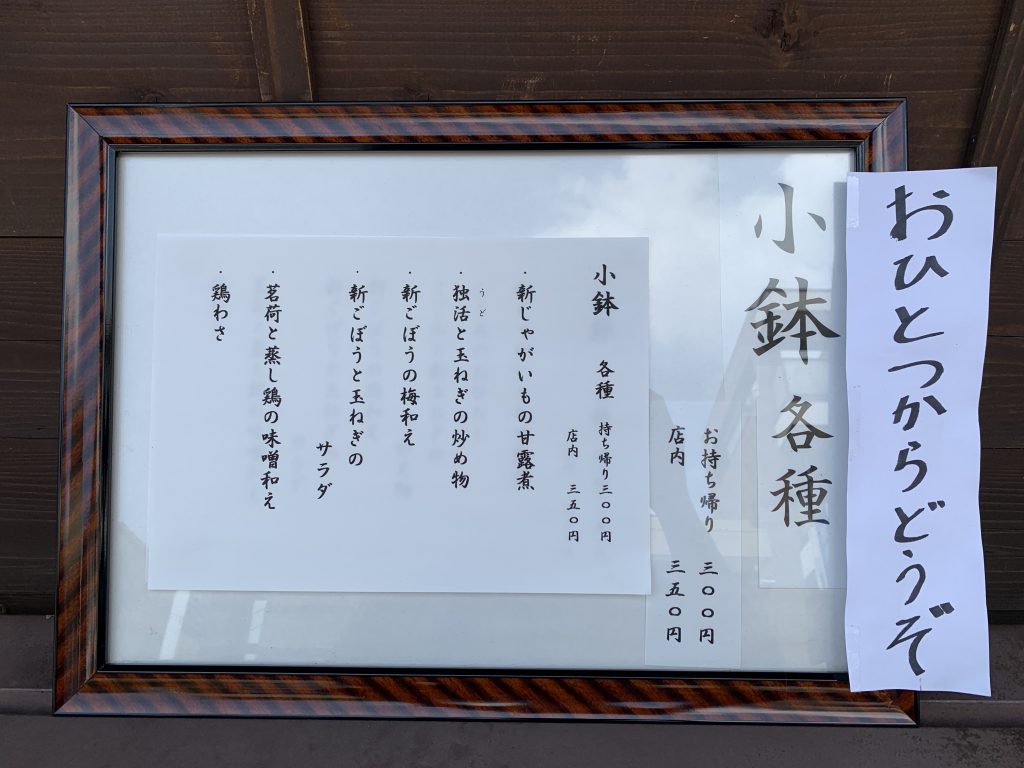 おひとつからどうぞ
小鉢各種
お持ち帰り 三〇〇円
店内 三五〇円
小鉢 各種 持ち帰り三〇〇円
店内 三五〇円
・新じゃがいもの甘露煮
うど
・独活と玉ねぎの炒め物
・新ごぼうの梅和え
・新ごぼうと玉ねぎの
サラダ
・茗荷と蒸し鶏の味噌和え
・鶏わさ